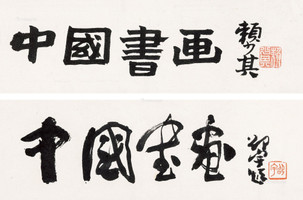 中國書画
賴少其
中國書画